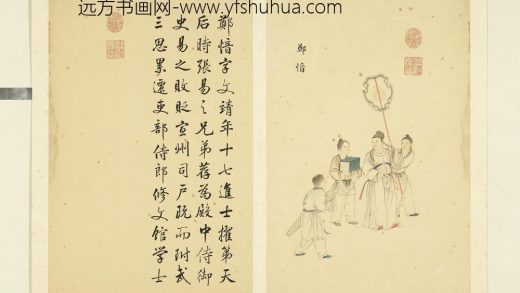 远方书画网- www.yfshuhua.com
鄭愔
鄭愔字文靖年十七進士擢第天
后時張易之兄弟荐為殿中侍御
史易之敗貶宣州司戶既而附武
三思累遷吏部侍郎修文館学士